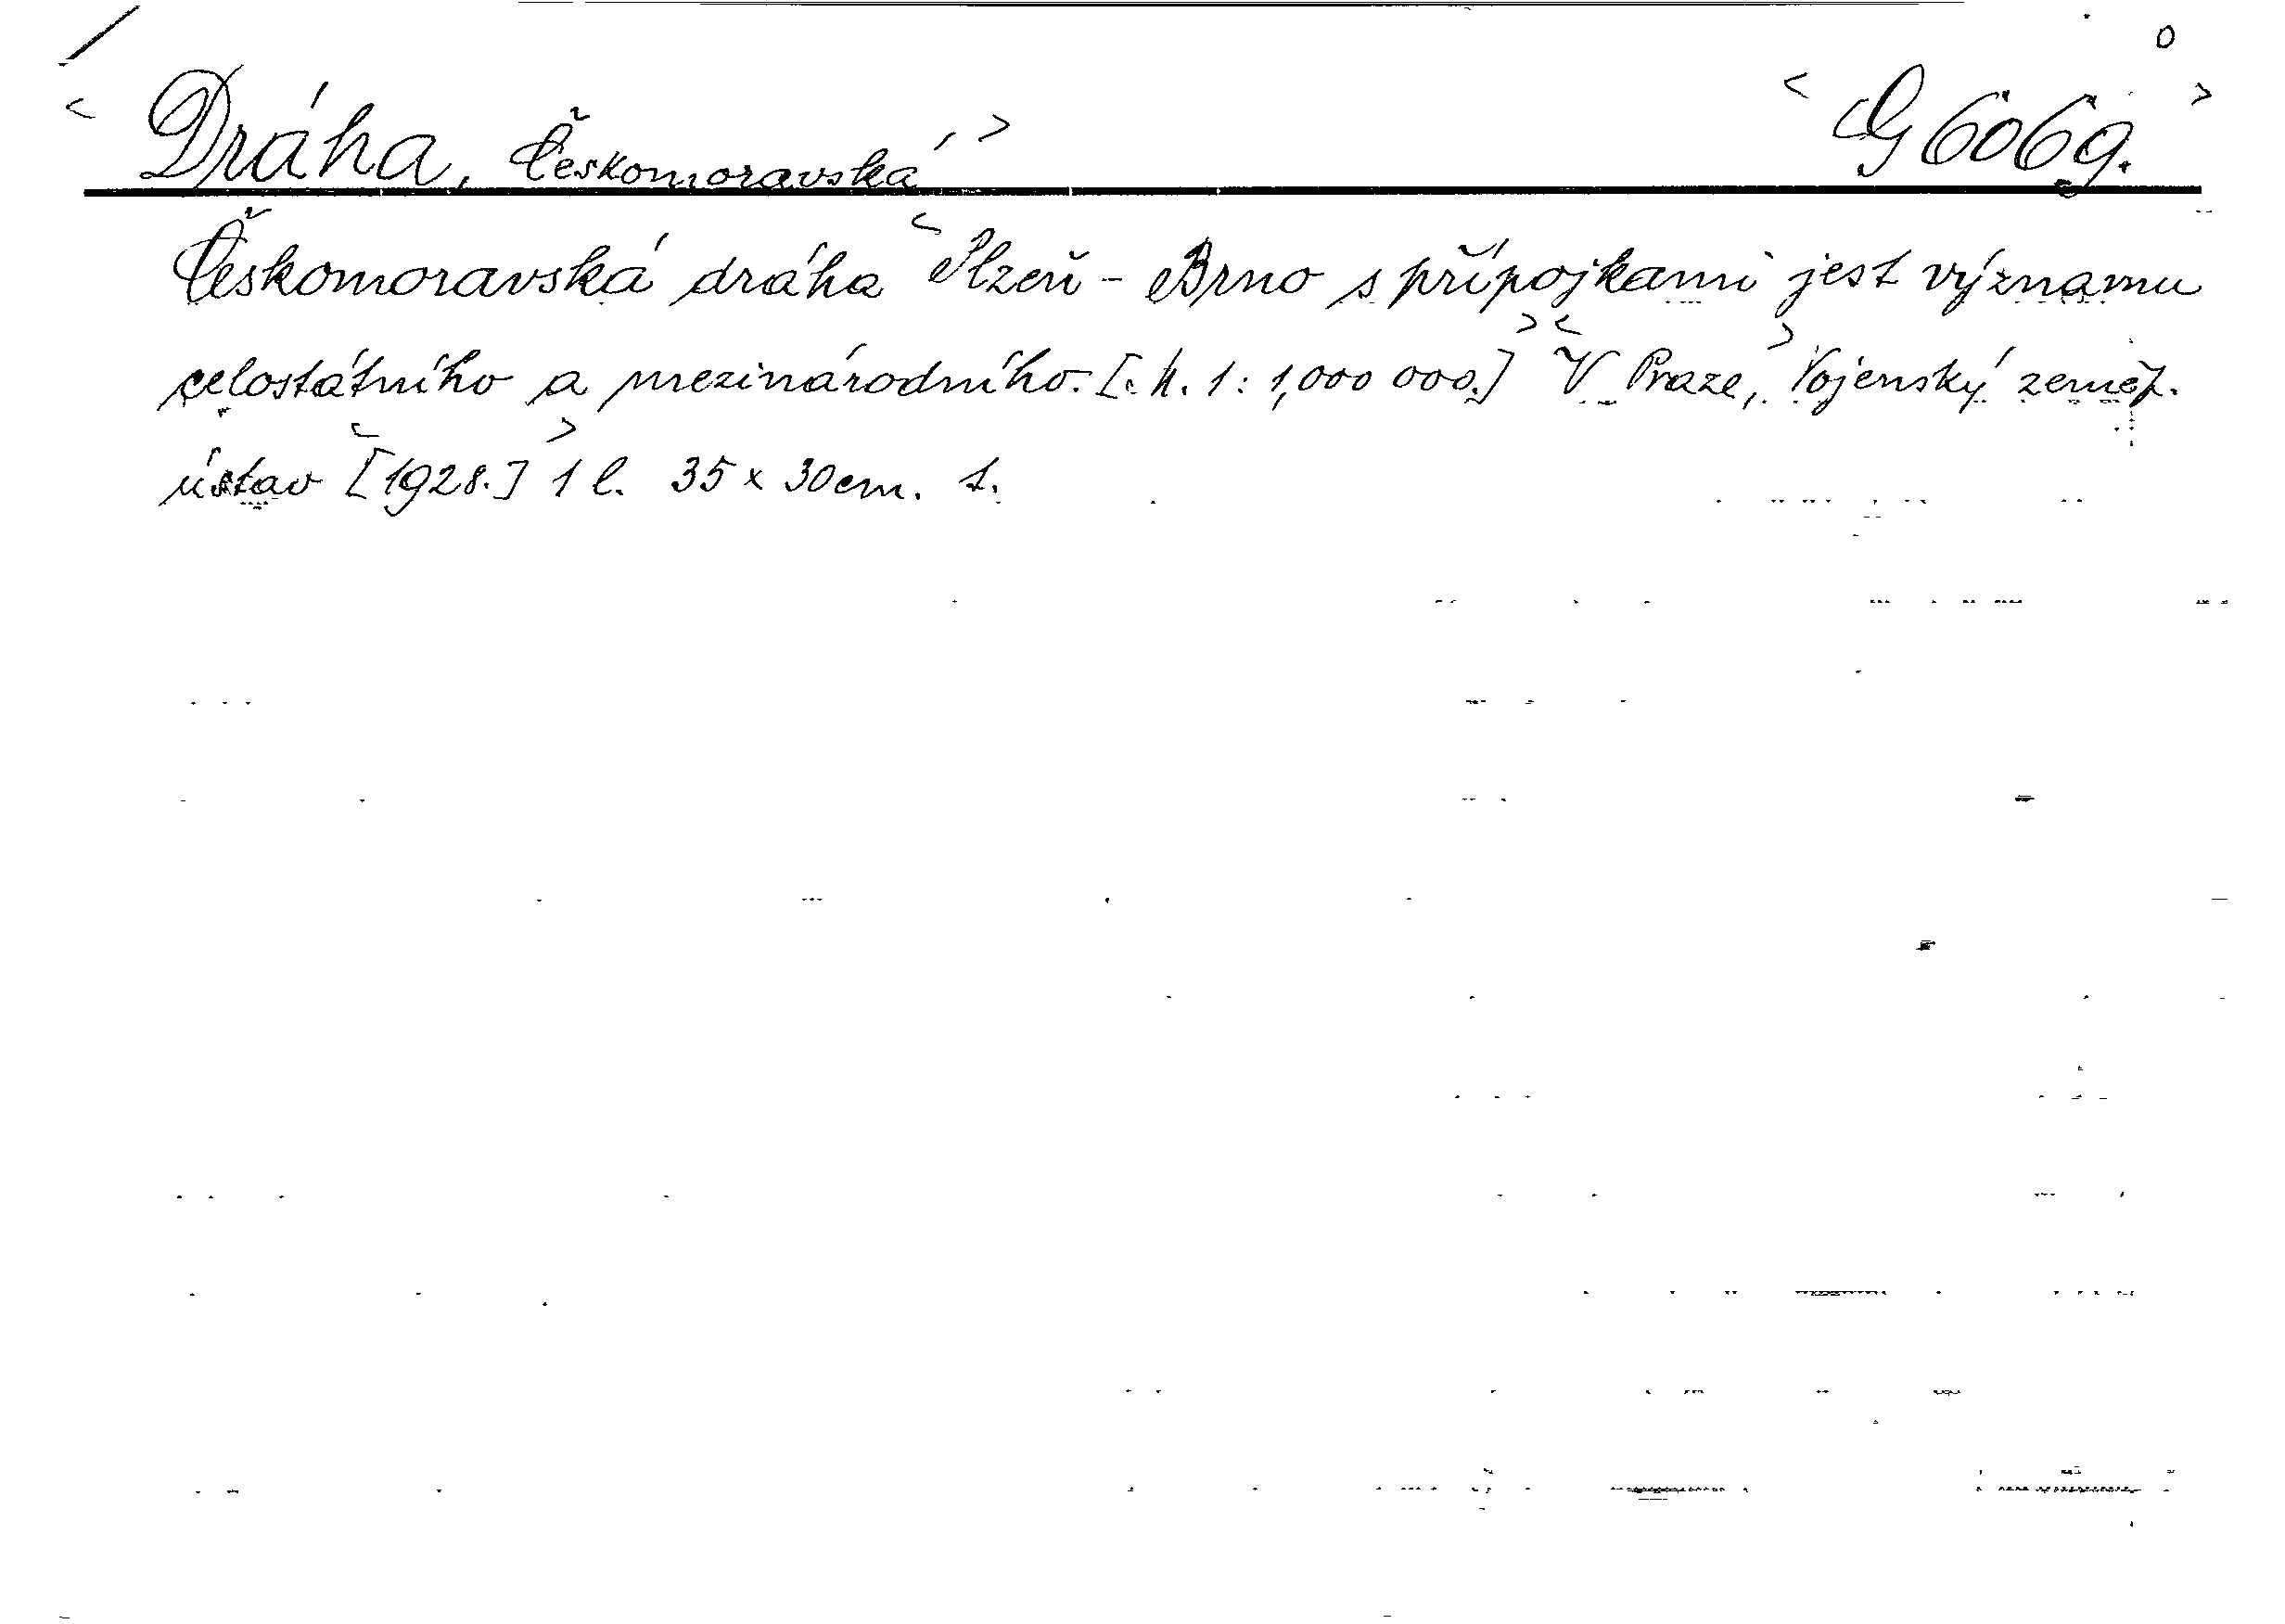 < Dráha, Českomoravská, > < G 6069. >
Českomoravská dráha Plzeň - Brno s přípojkami jest významu
celostátního a mezinárodního. [: M. 1 : 1,000 000.] V Praze, Vojenský zeměp.
ústav [1928.] 1 l. 35 x 30 cm.